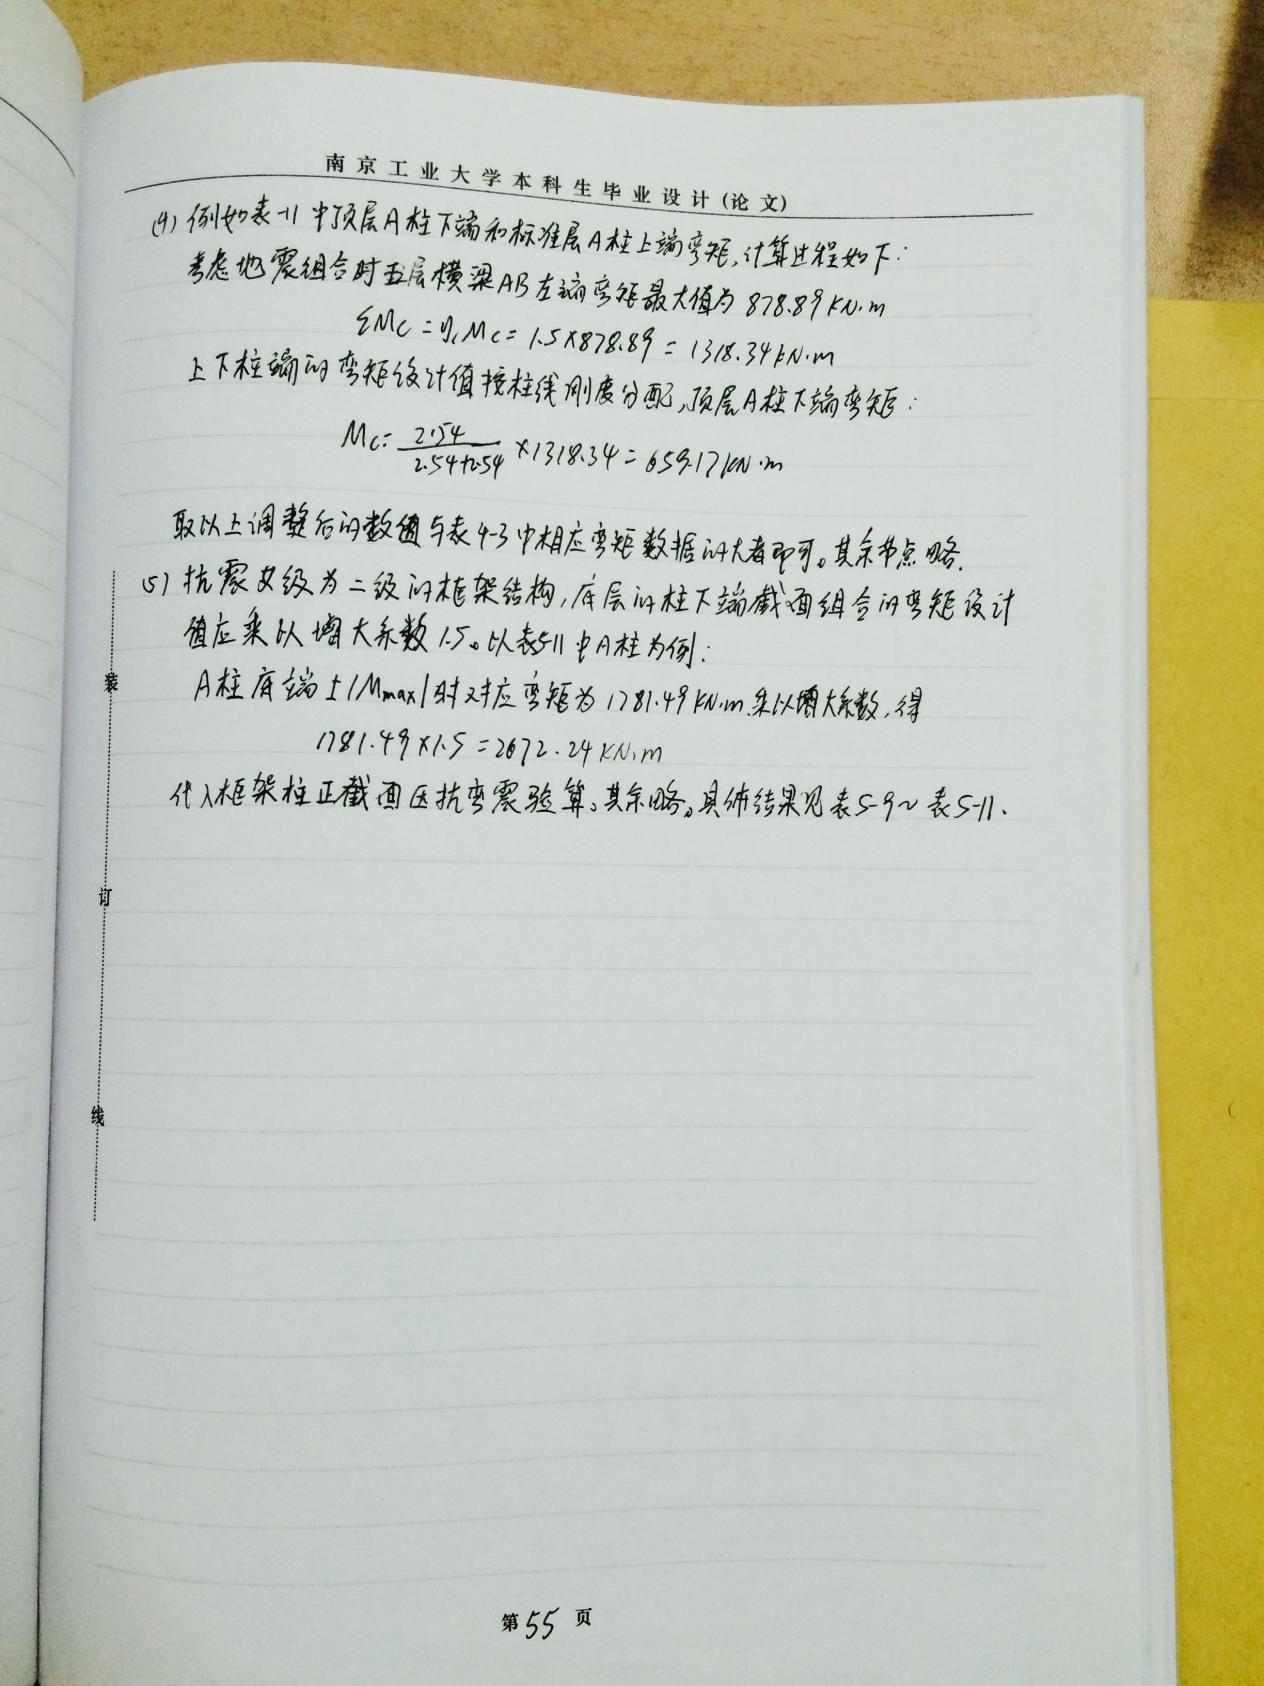 南京工业大学本科生毕业设计(论文)
(4) 例如表-11中顶层A柱下端和标准层A柱上端弯矩,计算过程如下:
考虑地震组合时五层横梁AB左端弯矩最大值为 878.89 KN·m
ΣMc = ηcMc = 1.5×878.89 = 1318.34 kN·m
上下柱端的弯矩设计值按柱线刚度分配,顶层A柱下端弯矩:
Mc = 2.54/(2.54+2.54) ×1318.34 = 659.17 KN·m
取以上调整后的数值与表4-3中相应弯矩数据的大者即可。其余节点略.
(5) 抗震等级为二级的框架结构,底层的柱下端截面组合的弯矩设计
值应乘以增大系数1.5。以表5-11中A柱为例:
A柱底端 ±|Mmax|时对应弯矩为1781.49 KN·m,乘以增大系数,得
1781.49×1.5 = 2672.24 KN·m
代入框架柱正截面压抗弯震验算。其余略。具体结果见表5-9~表5-11.
装
订
线
第55页